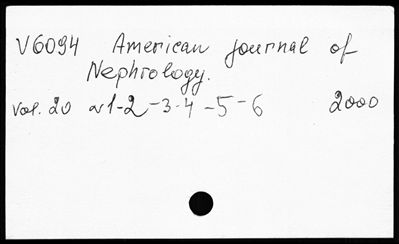 V6094 American journal of
Nephrology.
Vol. 20 N1-2-3-4-5-6 2000